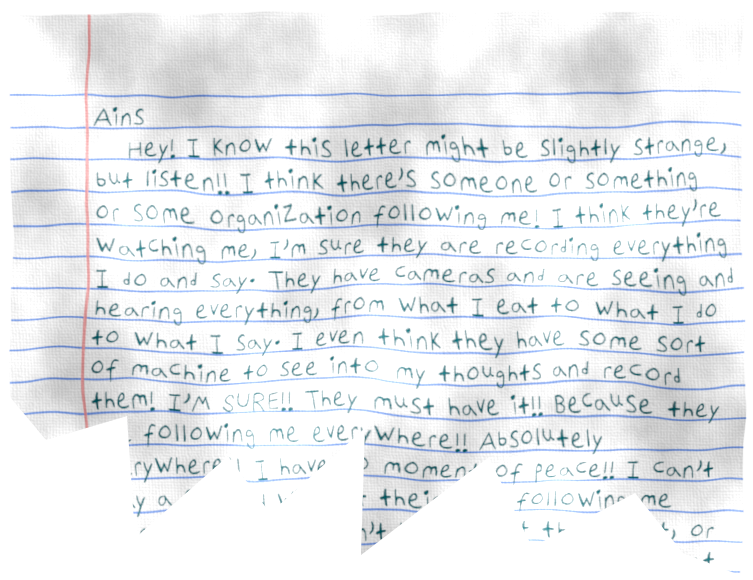 Ains
Hey! I know this letter might be slightly strange,
but listen!! I think there's someone or something
or some organization following me! I think they're
watching me, I'm sure they are recording everything
I do and say. They have cameras and are seeing and
hearing everything, from what I eat to what I do
to what I say. I even think they have some sort
of machine to see into my thoughts and record
them! I'M SURE!! They must have it!! Because they
following me everywhere!! Absolutely
I have moment of peace!! I can't
following me
or